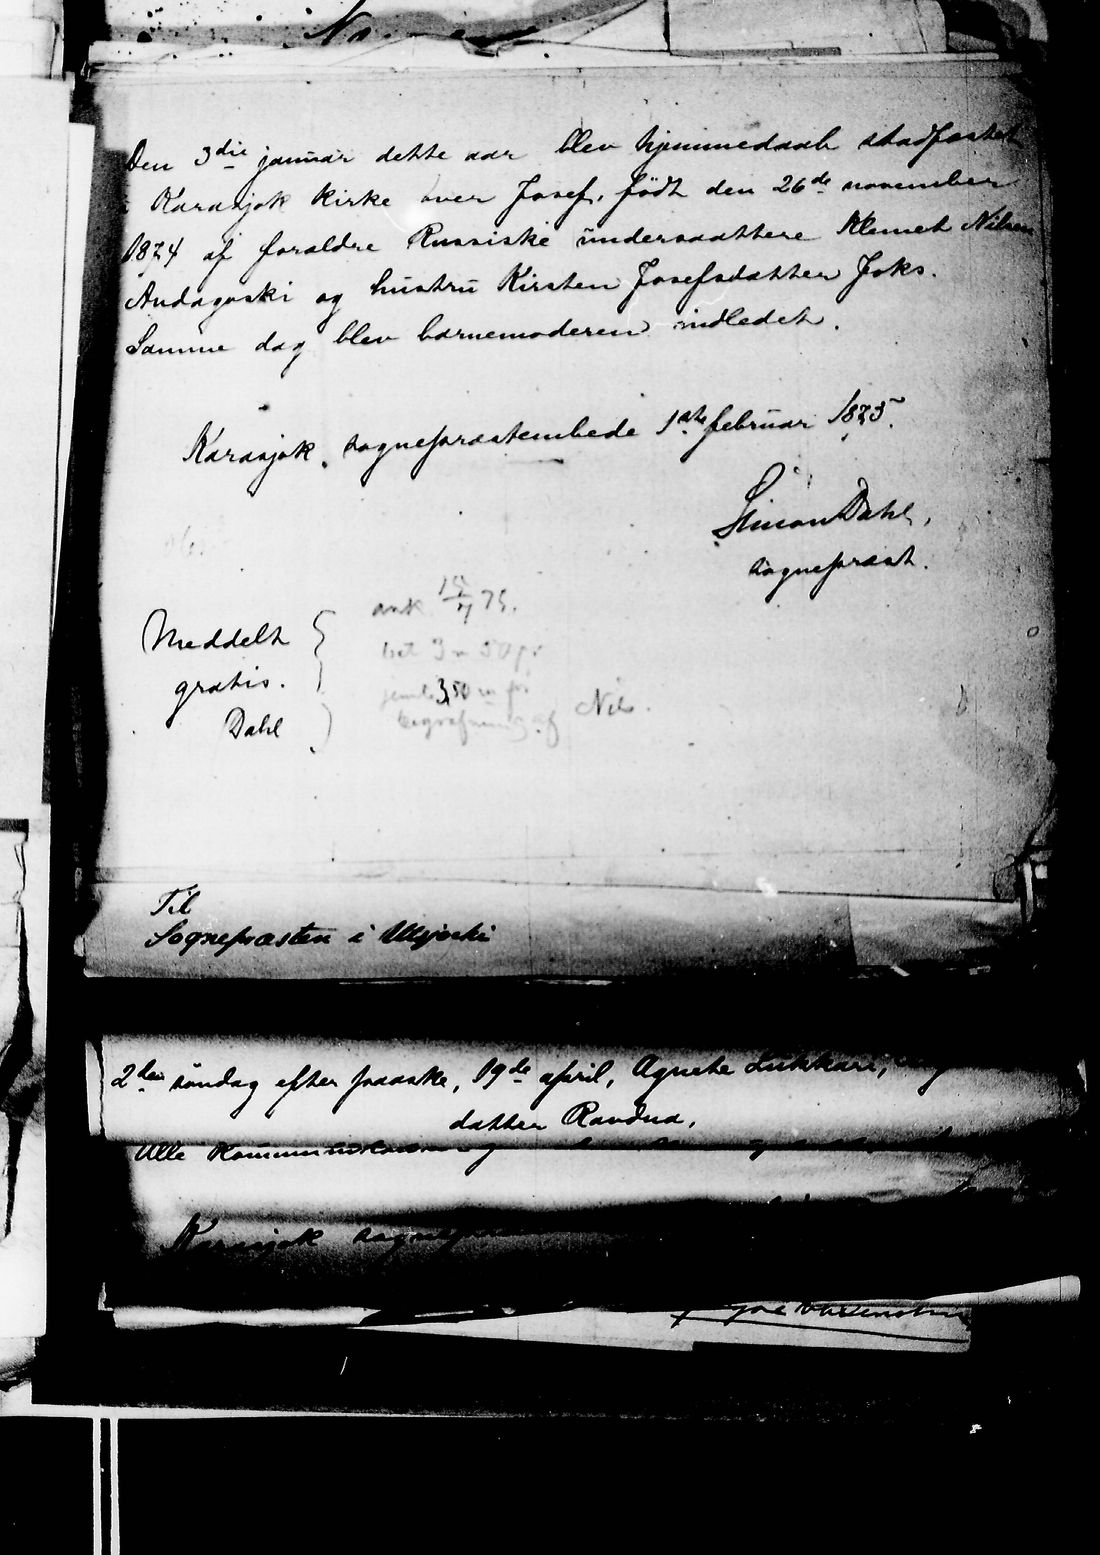 Den 3die januar dette aar blev hjemmedaab stadfæstet
i Karasjok kirke over Josef, født den 26de november
1874 af forældre Russiske undersaattere Klemet Nilsen
Andagoski og hustru Kirsten Josefsdatter Joks.
Samme dag blev barnemoderen indledet.
Karasjok sognepræstembede 1ste februar 1875.
Simon Dahl,
sognepræst.
Meddelt
gratis.
Dahl
ank 15/4 75.
3 50
3,50
begrafning af Nils.
Til
Sognepræsten i Utsjoki
2den søndag efter paaske, 19de april, Agnete Lukkari,
datter Ravdna.
Alle
Karasjok